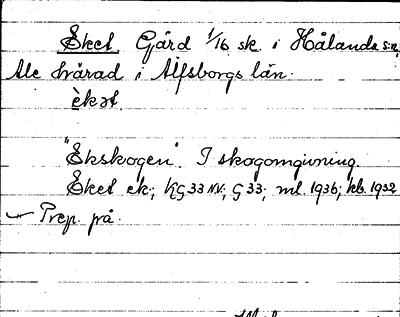 Eket Gård 1/16 sk. i Hålanda s:n,
Ale härad i Älfsborgs län.
è̀kət.
"Ekskogen". I skogomgivning.
Eket ek.; KG 33 NV.; G 33; ml. 1936; kb. 1932
Prep. på.